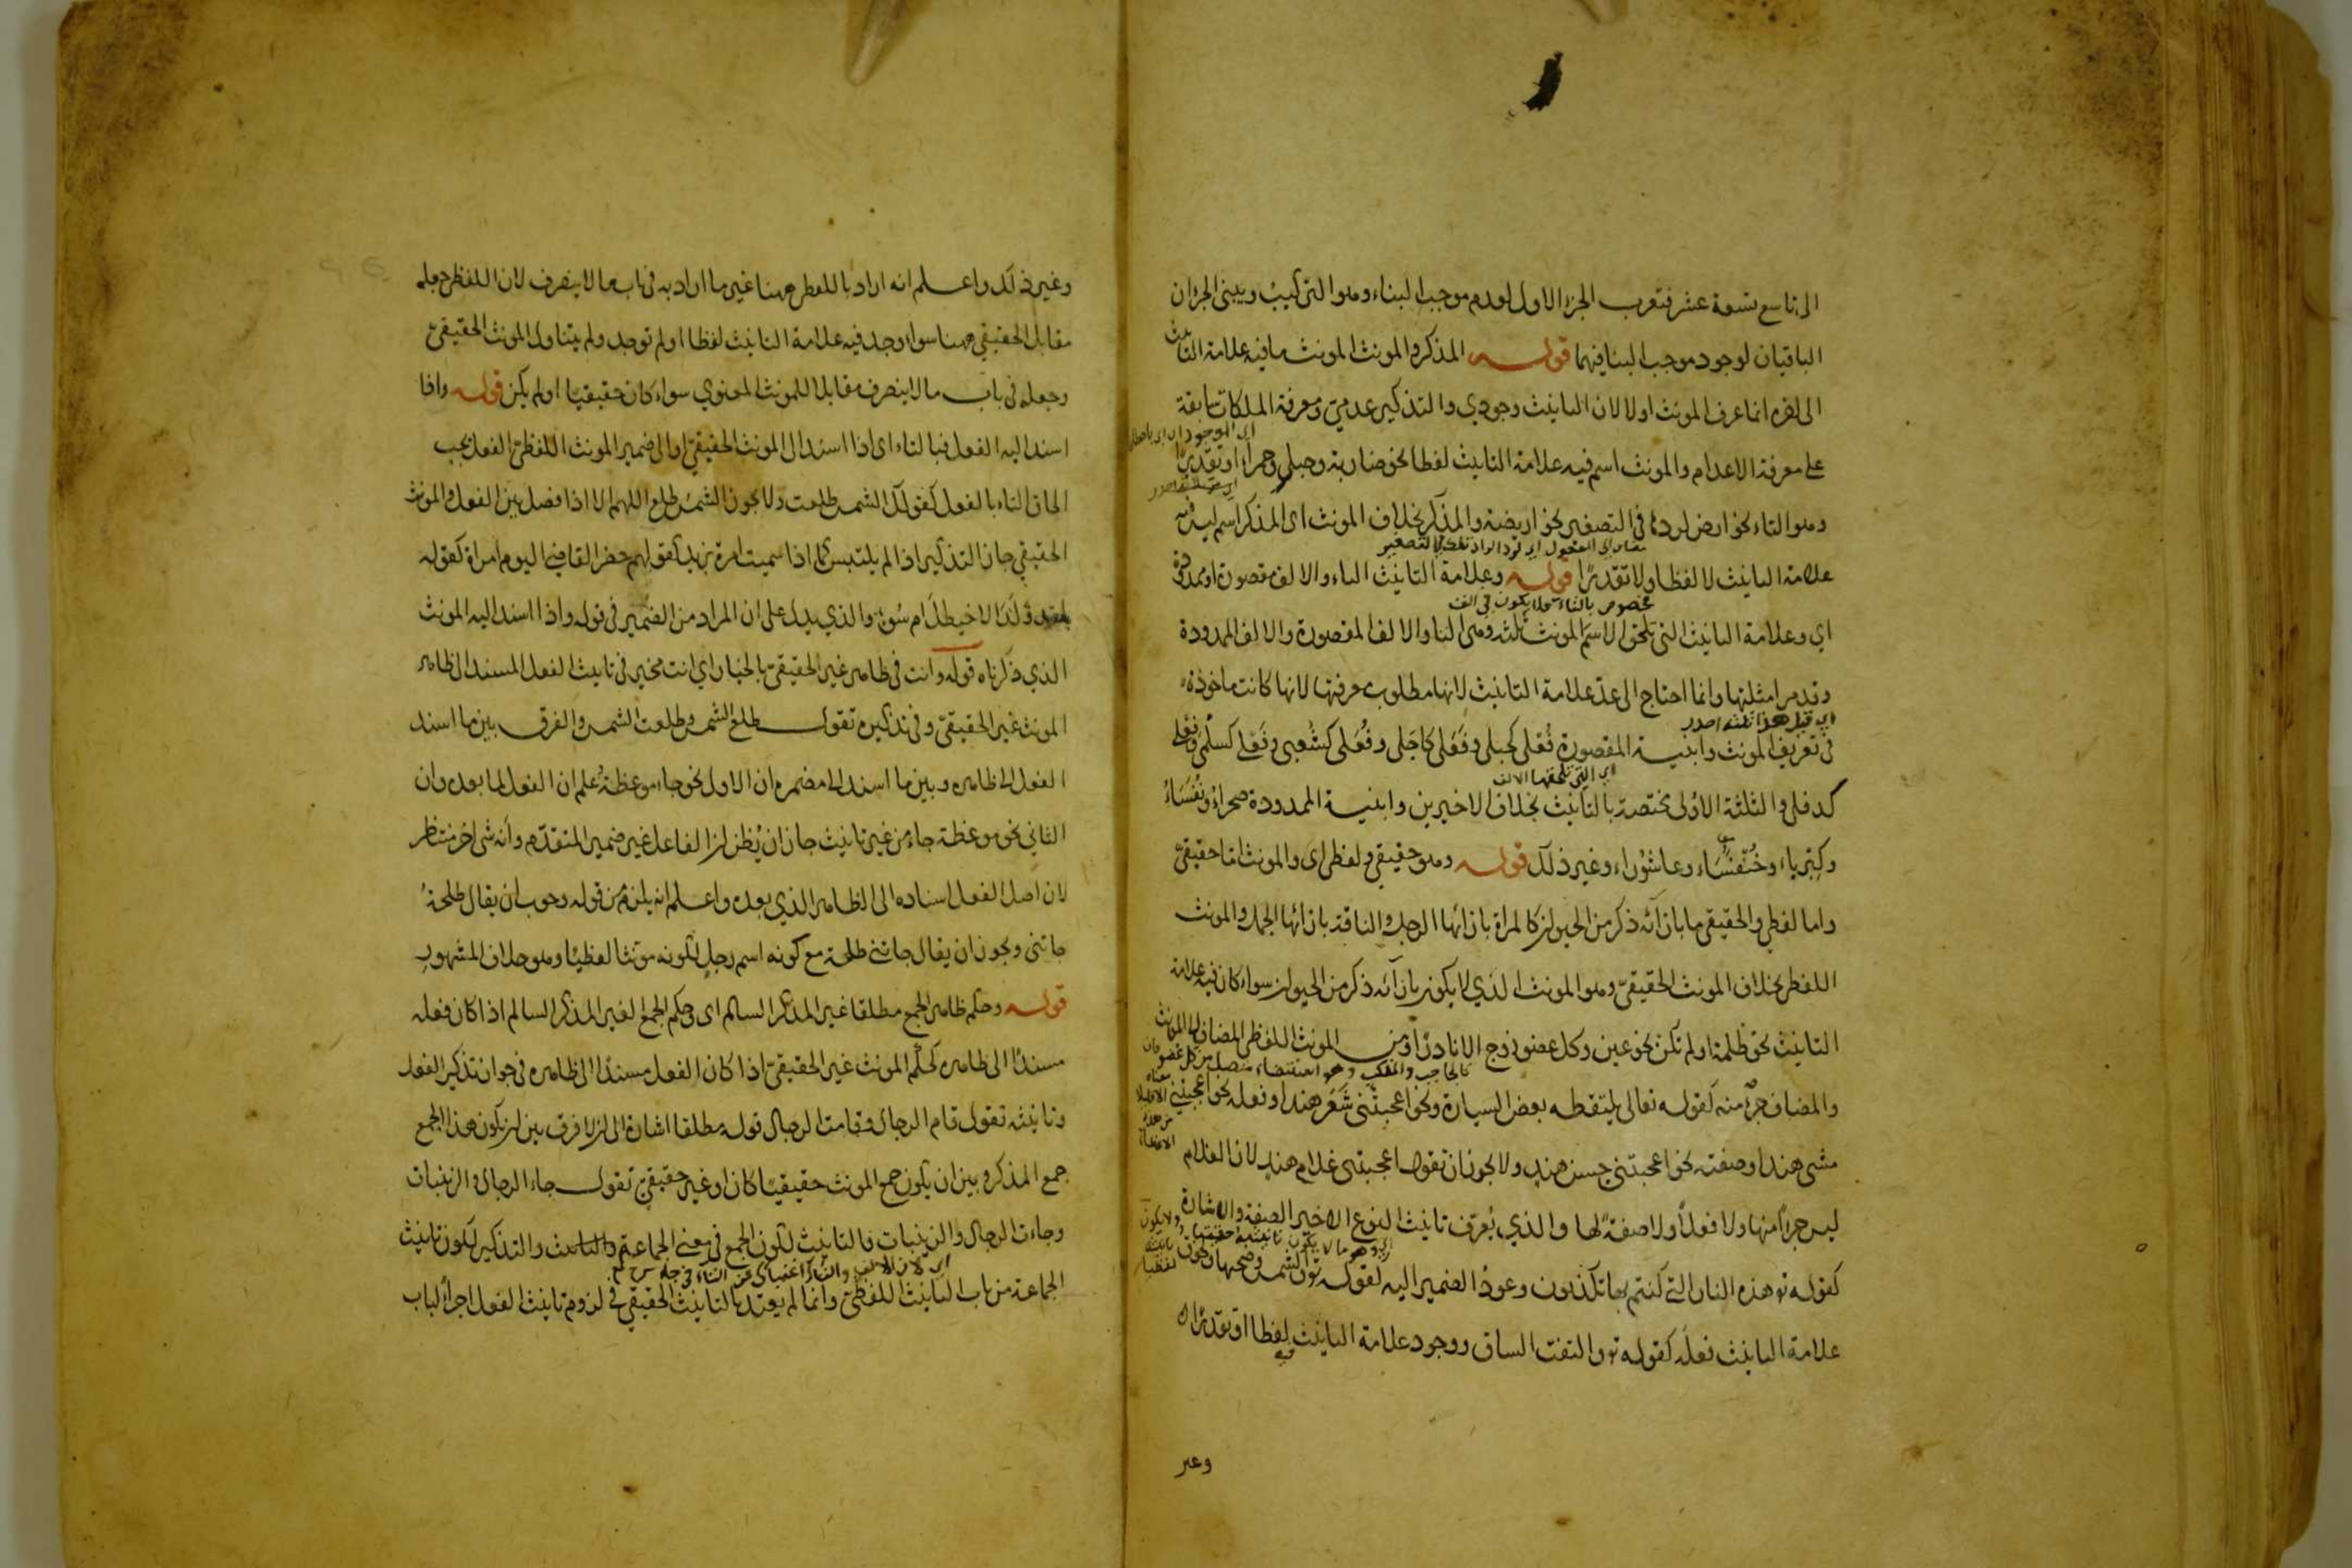 الى تاسع تسعة عشر فتعرب الجزء الاول لعدم موجب البناء وهو التركيب ويبنى الجزءان
الباقيان لوجود موجب البنا فيهما قوله المذكر والمونث المونث ما فيه علامة التانيث
الى اخره انما عرف المونث اولا لان التانيث وجودي والتذكير عدمي ومعرفة الملكات سابقة
على معرفة الاعدام والمونث اسم فيه علامة التانيث لفظا نحو ضاربة وحبلى وحمراء او تقديرا
وهو التاء نحو ارض لردها في التصغير نحو اريضة والمذكر بخلاف المونث اى المذكر اسم ليس فيه
علامة التانيث لا لفظا ولا تقديرا قوله وعلامة التانيث التاء والالف مقصورة او ممدودة
مخصوص بالتاء
اي وعلامة التانيث التي تلحق الاسم المونث ثلثه وهى التا والالف المقصورة والالف الممدودة
وقد مر امثلتها وانما احتاج الى عد علامة التانيث لانها مطلوب معرفتها لانها كانت ماخوذة
في تعريف المونث وابنية المقصورة فُعْلى كحبلى وفَعَلى كاجَلى وفُعَلى كشُعَبى وفَعْلى كسلْمى وفِعْلى
اي التي تلحقها الالف
كدفلى والثلثة الاوْلى مختصة بالتانيث بخلاف الاخيرين وابنية الممدودة صحراءُ ونُفَسَاءُ
وكبرياء وخُنْفَسَاء وعاشُوراء وغير ذلك قوله وهو حقيقي ولفظى اى والمونث اما حقيقيّ
واما لفظي والحقيقي ما بازائه ذكر من الحيوان كالمراة بازائها الرجل والناقة بازائها الجمل والمونث
اللفظي بخلاف المونث الحقيقيّ وهو المونث الذي لا يكون بازائه ذكر من الحيوان سواء كان فيه علامة
التانيث نحو ظلمة او لم تكن نحو عين وكل عضو زوج الا نادرا ومن المونث اللفظي المضاف الى المونث
والمضاف جزءٌ منه كقوله تعالى يلتقطه بعض السيارة ونحو اعجبتنى شَعَرُ هند او فعله نحو اعجبتني
مشى هند او صفته نحو اعجبتنى حسن هند ولا يجوز ان تقول اعجبتنى غلام هند لان الغلام
ليس جزءا منها ولا فعلاً ولا صفةً لها والذي يُعرّف تانيث النوع الاخير الصفة والاشارة
كقوله تع هذه النار التي كنتم بها تكذبون وعودُ الضمير اليه كقوله تع والشمس وضحيها ولحوق
علامة التانيث فعلَه كقوله تع والتفت الساق ووجود علامة التانيث فيه لفظا او تقديرا
وغير
وغير ذلك واعلم انه اراد باللفظي ههنا غير ما اراد به في باب ما لا ينصرف لان اللفظي جعله
مقابل الحقيقي ههنا سواء وجد فيه علامة التانيث لفظا او لم توجد ولم يتناول المونث الحقيقيّ
وجعله في باب ما لا ينصرف مقابلا للمونث المعنوي سواء كان حقيقيّا او لم يكن قوله واذا
اسند اليه الفعل فبالتاء اى اذا اسند الى المونث الحقيقي او الى ضمير المونث اللفظي الفعل يجب
الحاق التاء بالفعل كقولك الشمس طلعت ولا يجوز الشمس طلع اللهم الا اذا فصل بين الفعل والمونث
الحقيقي جاز التذكير اذا لم يلتبس كما اذا سميت امراة بزيد كقولهم حضر القاضي اليوم امراة كقوله
لقد وَلَدَ الاخيطلَ ام سُوءٍ والذي يدل على ان المراد من الضمير في قوله واذا اسند اليه المونث
الذي ذكرناه قوله وانت في ظاهر غير الحقيقيّ بالخيار اي انت مخير في تانيث الفعل المسند الى ظاهر
المونث غير الحقيقيّ وفي تذكيره تقول طلع الشمس وطلعت الشمس والفرق بين ما اسند
الفعل الى ظاهره وبين ما اسند الى مضمره ان الاول نحو جاء موعظةٌ عُلم ان الفعل لما بعده وان
الثاني نحو موعظة جاء من غير تانيث جاز ان يُظن ان الفاعل غير ضمير المتقدّم وانه شى اخر منتظر
لان اصل الفعل اسناده الى الظاهر الذي بعده واعلم انه يلزم من قوله وجوب ان يقال طلحةُ
جاتنى ويجوز ان يقال جاتني طلحة مع كونه اسم رجلٍ لكونه مونثا لفظيّا وهو خلاف المشهور
قوله وحكم ظاهر الجمع مطلقا غير المذكر السالم اى وحكم الجمع لغير المذكر السالم اذا كان فعله
مسندًا الى ظاهره كحكم المونث غير الحقيقيّ اذا كان الفعل مسندًا الى ظاهره في جواز تذكير الفعل
وتانيثه تقول قام الرجال وقامت الرجال قوله مطلقا اشارة الى ان لا فرق بين ان يكون هذا الجمع
جمع المذكر وبين ان يكون جمع المونث حقيقيّا كان او غير حقيقيّ تقول جاء الرجال والزينبات
وجاءت الرجال والزينبات فالتانيث لكون الجمع في معنى الجماعة والتذكير لكون تانيث
الجماعة من باب التانيث اللفظيّ وانما لم يعتد بالتانيث الحقيقي في لزوم تانيث الفعل اجراءً لباب